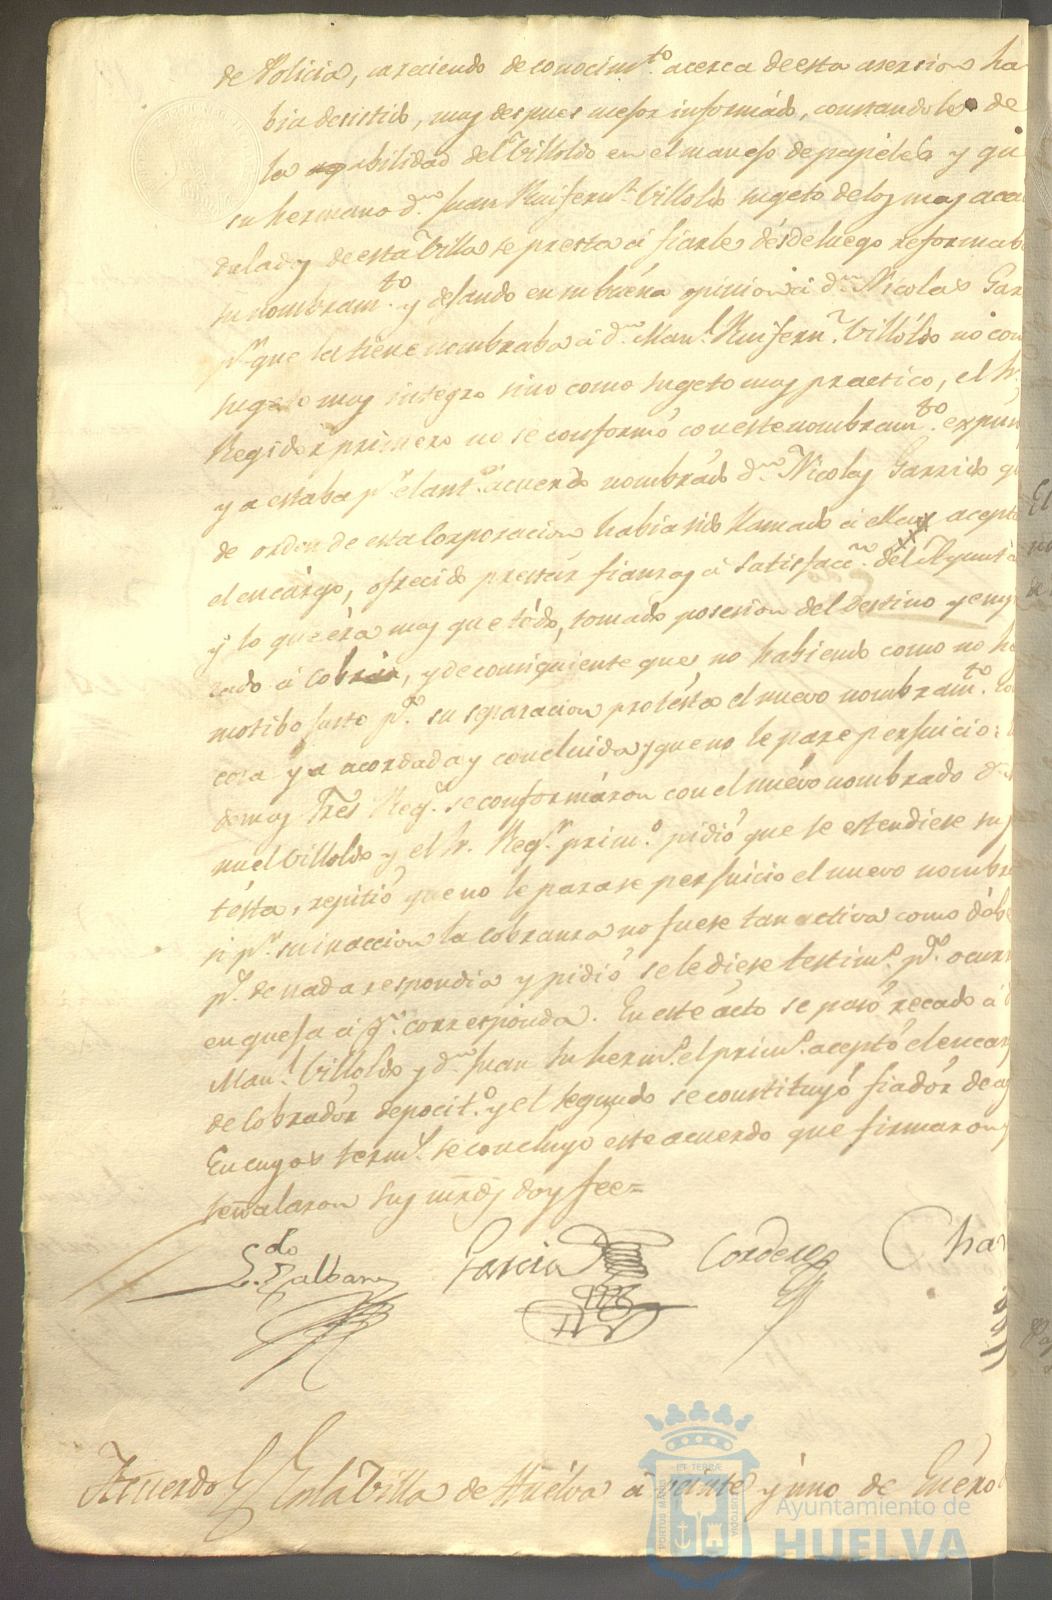 de Policia, careciendo de conocim.to acerca de esta asersion ha
bia desistido, mas despues mejor informado, constandole de
la abilidad del Villoldo en el manejo de papeles y qu
su hermano d.n Juan Ruifern.z Villoldo sugeto de los mas acau
dalados de esta Villa se presta á fiarle desde luego reformab
su nombram.to y dejando en su buena opinion á d.n Nicolas Gar
p.r que la tiene nombraba á d.n Man.l Ruifern.z Villoldo no con
sugeto mas integro sino como sugeto mas practico, el S.r
Regidor primero no se conformó con este nombram.to expun
ya estaba p.r el ant.r acuerdo nombrado d.n Nicolas Garrido q
de orden de esta Corporacion habia sido llamado á acepto
el encargo, ofrecido prestar fianzas á satisfacc.n del Ayunt
y lo que era mas que todo, tomado posesion del Destino y emp
zado á cobrar, y de consiguiente que no habiendo como no h
motibo justo p.a su separacion protesta el nuevo nombram.to
cosa ya acordada y concluida y que no le pare perjuicio:
demas Tres Reg.s se conformáron con el nuevo nombrado d.n
nuel Villoldo y el S.r Reg.r prim.o pidió que se estendiese su
testa, repitió que no le parase perjuicio el nuevo nombra
si p.r su inaccion la cobranza no fuese tan activa como debe
p.s de nada respondia y pidió se le diese testim.o p.a ocurr
en queja á q.n corresponda. En este acto se pasó recado á
Man.l Villoldo y d.n Juan su herm.o el prim.o aceptó el encar
de Cobrador deposit.o y el segundo se constituyó fiador de
En cuyos term.s se concluyó este acuerdo que firmaron
señalaron sus mrds doy fee=
L.do Balbany Garcia Cordero Cha
Acuerdo En la Villa de Huelva á veinte y uno de Enero
ET TERRÆ
PORTUS MARIS
CUSTODIA
Ayuntamiento de
HUELVA